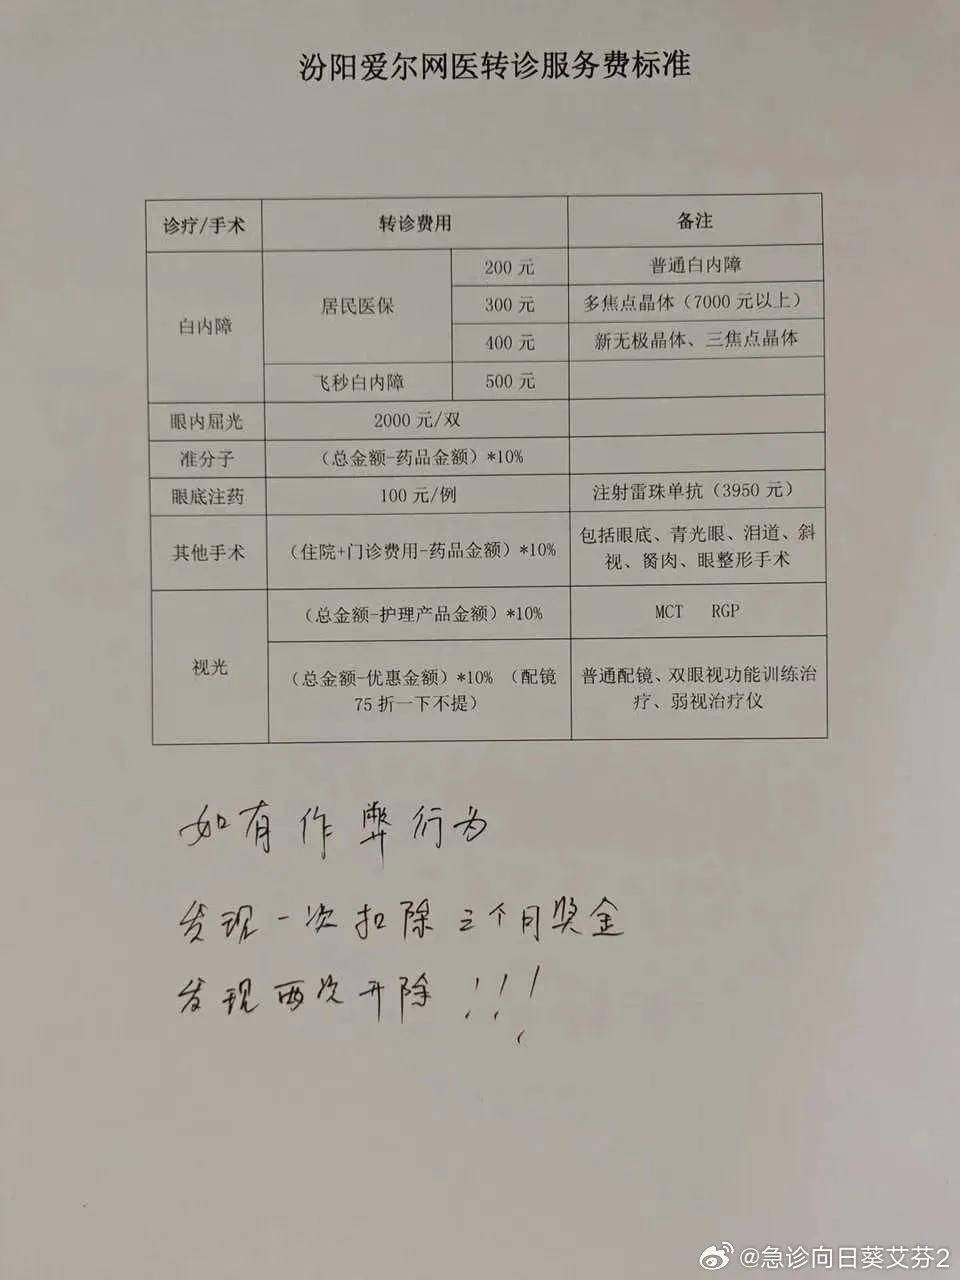 汾阳爱尔网医转诊服务费标准
诊疗/手术 转诊费用 备注
白内障 居民医保 200元 普通白内障
300元 多焦点晶体（7000元以上）
400元 新无极晶体、三焦点晶体
飞秒白内障 500元
眼内屈光 2000元/双
准分子 （总金额-药品金额）*10%
眼底注药 100元/例 注射雷珠单抗（3950元）
其他手术 （住院+门诊费用-药品金额）*10% 包括眼底、青光眼、泪道、斜
视、胬肉、眼整形手术
视光 （总金额-护理产品金额）*10% MCT RGP
（总金额-优惠金额）*10%（配镜
75折一下不提） 普通配镜、双眼视功能训练治
疗、弱视治疗仪
如有作弊行为
发现一次扣除三个月奖金
发现两次开除!!!
@急诊向日葵艾芬2